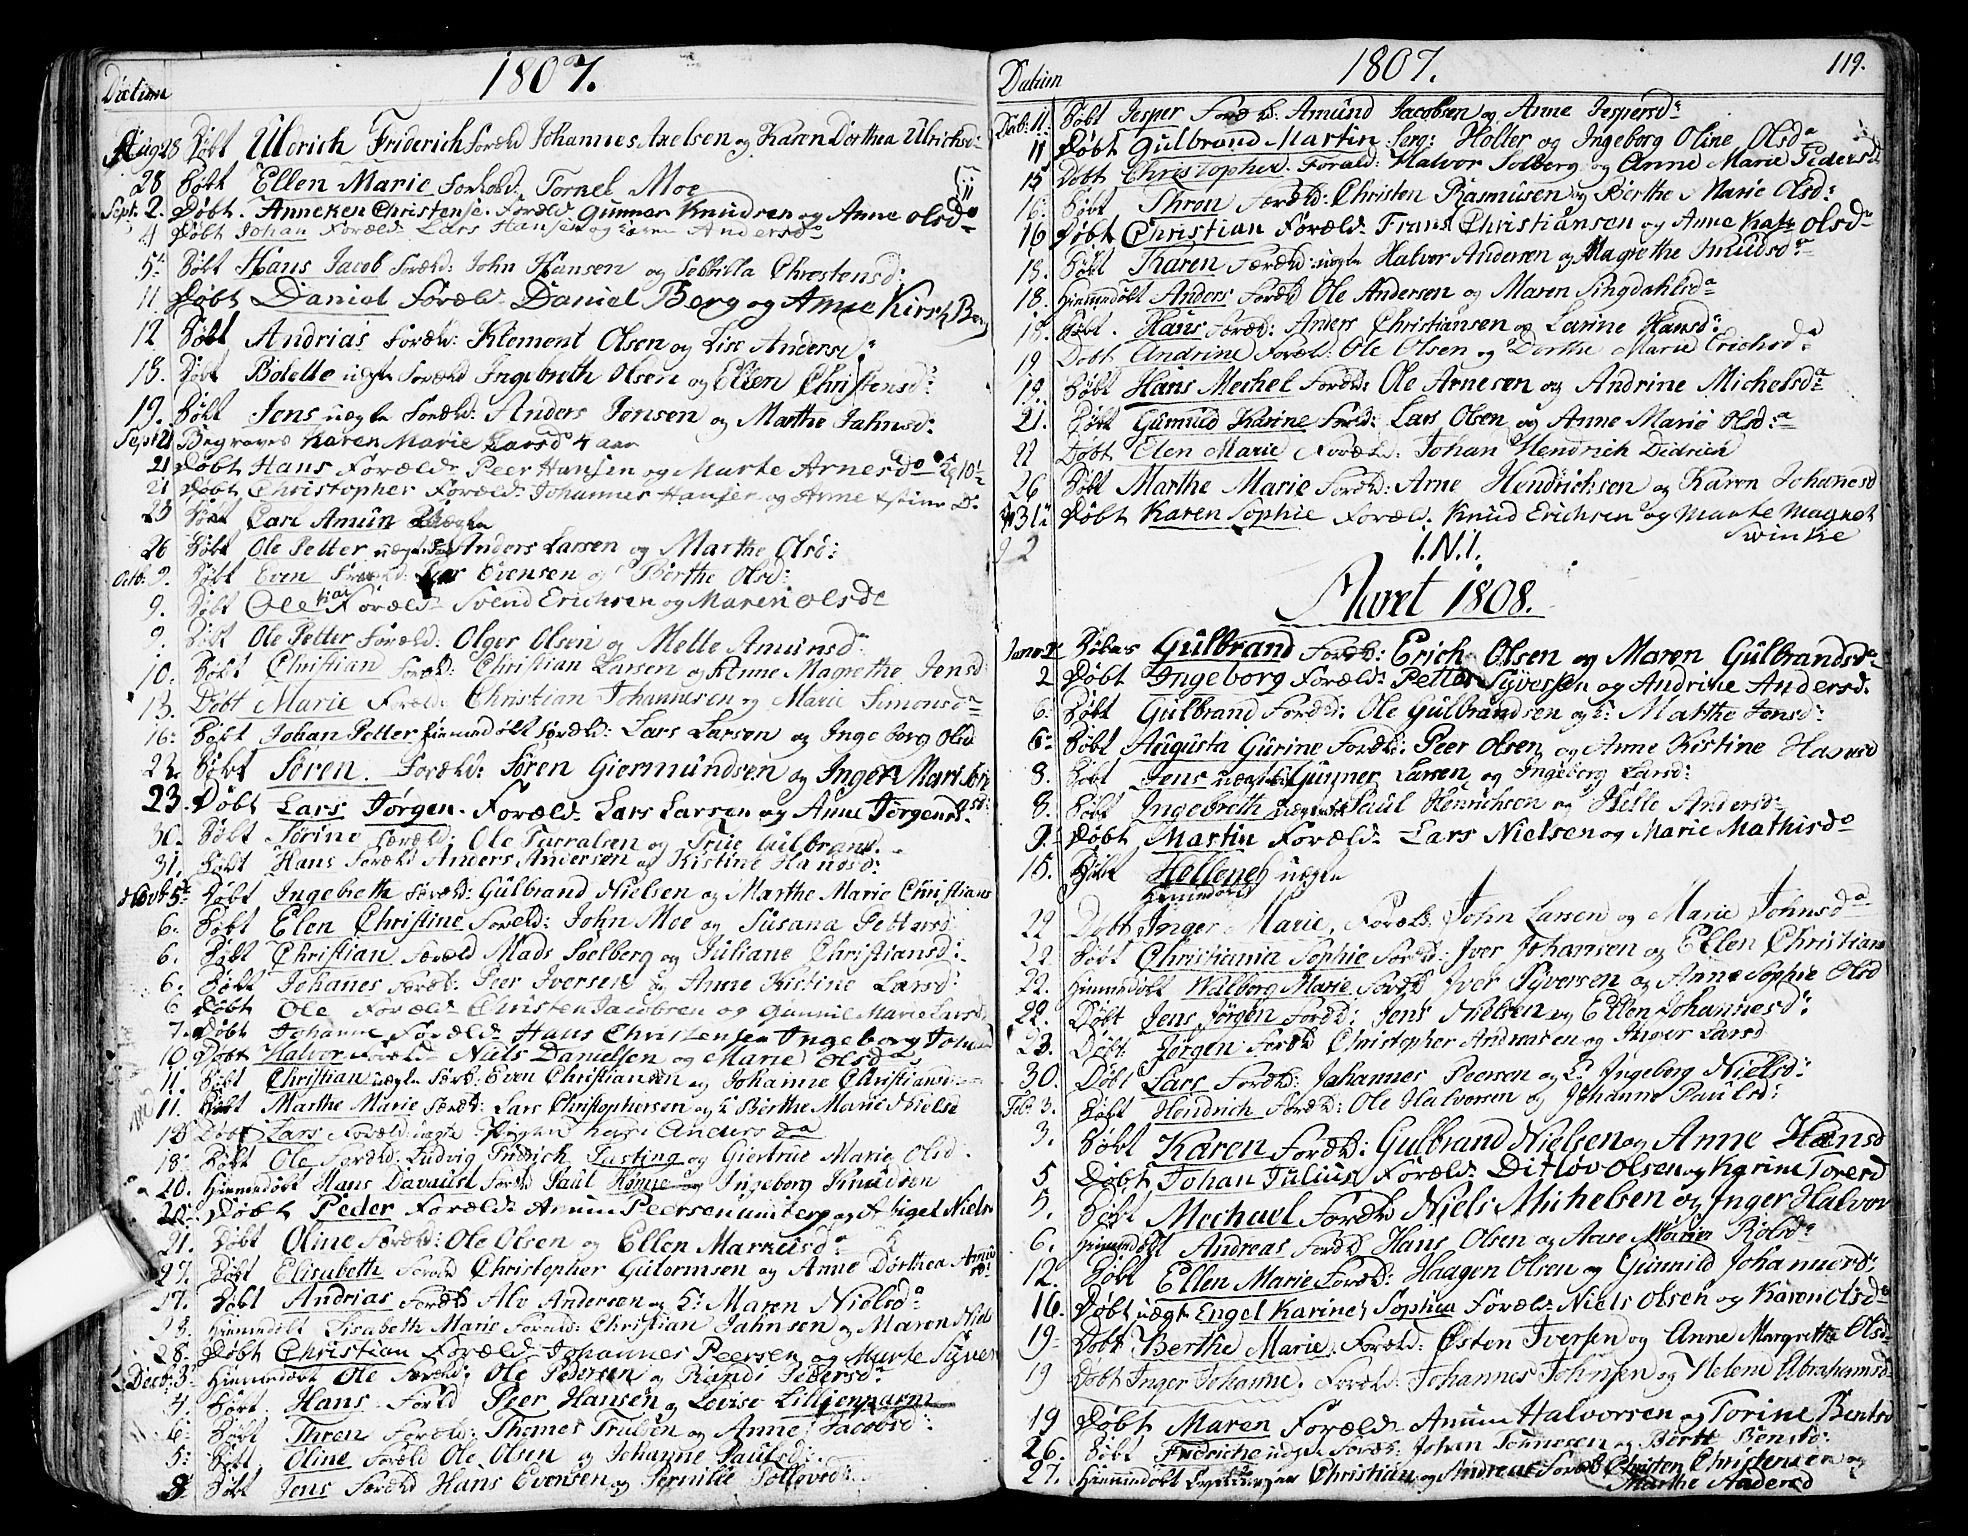 Datum
1807.
Aug 28 Døbt Uldrich Friderich Foræld Johannes Axelsen og Karen Dorthea Ulrichsd
28 Døbt Ellen Marie Foræld: Tornel Moe
Sept: 2. Døbt. Anneken Christense. Foræld. Gunner Knudsen og Anne Olsdr
4 Døbt Johan Foræld. Lars Hansen og Andersdr
5 Døbt Hans Jacob Foræld: John Hansen og Sebbilla Christensd:
11. Døbt Daniel Foræld. Daniel Berg og Anne Kirst Berg
12 Døbt Andrias Foræld: Klement Olsen og Lise Andersd:
18. Døbt Bolette uægte Foræld Ingebreth Olsen og Ellen Christensd:
19. Døbt Jens uægte Foræld: Anders Jensen og Marthe Jahnsd:
Sept 21 Begraves Karen Marie Larsd 4 aar
21 Døbt Hans Foræld. Peer Hansen og Marte Arnesdr
21 Døbt Christopher Foræld. Johannes Hansen og Anne
25 Døbt Carl Amun uægte
26 Døbt Ole Petter uægte Anders Larsen og Marthe Olsd:
Octb. 9. Døbt Even Foræld: Evensen og Berthe Olsd:
9. Døbt Ole Foræld. Svend Erichsen og Maren Olsdr
9. Døbt Ole Petter Foræld: Olger Olsen og Melle Amunsd:
10. Døbt Christian Foræld: Christian Larsen og Anne Magrethe Jensd
13. Døbt Marie Foræld. Christian Johannesen og Marie Simonsdr
16. Døbt Johan Petter hiemmedøbt Foræld: Lars Larsen og Ingeborg Olsd
22. Døbt Søren. Foræld: Søren Giermundsen og Inger Marie
23. Døbt Lars Jørgen. Foræld. Lars Larsen og Anne Jørgensd.
30. Døbt Sørine Foræld: Ole Tarralsen og Guilbrans.
31. Døbt Hans Foræld Anders Andersen og Kistine Hansd:
Novb 5 Døbt Ingebreth Foræld: Gulbrand Nielsen og Marthe Marie Christians
6. Døbt Elen Christine Foræld: John Moe og Susana Pettersd
6. Døbt Christian Foræld Mads Soelberg og Juliane Christiansd:
6. Døbt Johanes Foræld: Peer Iversen og Anne Kistine Larsd:
6 Døbt Ole Foræld. Christen Jacobsen og Gunnil Marie Larsd
7. Døbt Johanne Foræld. Hans Christensen Ingeborg
10 Døbt Halvor Foræld. Niels Danielsen og Marie Olsdr
11. Døbt Christian uægte Foræld: Even Christiansen og Johanne Christians
11. Døbt Marthe Marie Foræld: Lars Christophersen og Berthe Marie Nielsd
18 Døbt Lars Foræld. uægte
18. Døbt Ole Foræld. Ludvig Fridrich Lasting og Giertrue Marie Olsd.
20. Hiemmedøbt Hans Davuust Foræld Paul og Ingeborg Knudsen
20. Døbt Peder Foræld. Amun Peersen og Sigel Niels
21. Døbt Oline Foræld: Ole Olsen og Ellen Markusdr
27. Døbt Elisabeth Foræld Christopher Gutormsen og Anne Dorthea
27. Døbt Andrias Foræld Alv Andersen og Maren Nielsdr
28. Hiemmedøbt Lisabeth Marie Foræld: Christian Jahnsen og Maren Niels
28. Døbt Christian Foræld. Johannes Peersen og Marte Syver
Decb: 3. Hiemmedøbt Ole Foræld: Ole Pedersen og Randi Pedersd:
4. Døbt. Hans Foræld Peer Hansen og Lovise Lilljenparm
6. Døbt Thron Foræld: Thomas Trulsen og Anne Jacobsd:
5. Døbt. Oline Foræld Ole Olsen og Johanne Paulsd:
8 Døbt Jens Foræld Hans Evensen og Pernille
Datum
1807.
119.
Decb: 11. Døbt Jesper Foræld: Amund Jacobsen og Anne Jespersd:
11 Døbt Gulbrand Martin Serg: Holter og Ingeborg Oline Olsdr
15 Døbt Christopher Foræld: Halvor Solberg og Anne Marie Pedersd
16. Døbt Thron Foræld: Christen Rasmusen og Berthe Marie Olsd:
16 Døbt Christian Foræld. Frans Christiansen og Anne Kat Olsdr
18. Døbt Karen Foræld: uægte Halvor Andersen og Magrethe Knudsdr
18. Hiemmedøbt Anders Foræld Ole Andersen og Maren Singdahlsdr
18. Døbt. Hans Foræld: Anders Christiansen og Larine Hansd:
19 Døbt Andrine Foræld: Ole Olsen og Dorthe Marie Erichsdr
19. Døbt Hans Mechel Foræld: Ole Arnesen og Andrine Michelsdr
21. Døbt Gunnild Karine Foræld: Lars Olsen og Anne Marie Olsd:
22 Døbt Elen Marie Foræld. Johan Hendrich Didrich
26 Døbt Marthe Marie Foræld: Arne Hendrichsen og Karen Johanesd
31 Døbt Karen Sophie Foræld. Knud Erichsen og Marte Magret
Swinke
92
I.N.I.
Aaret 1808.
Janr. 2 Døbes Gulbrand Foræld: Erich Olsen og Maren Gulbrandsd:
2 Døbt Ingeborg Foræld. Petter Syversen og Andrine Andersd.
6. Døbt Gulbrand Foræld: Ole Gulbrandsen og Marthe Jensd:
6. Døbt Augusta Gurine Foræld: Peer Olsen og Anne Kistine Hansd
8. Døbt Jens uægte Gunner Larsen og Ingeborg Larsd:
8. Døbt Ingebreth uægte Paul Henrichsen og Helle Andersd:
9. Døbt Martin Foræld. Lars Nielsen og Marie Mathisdr
15. Døbt Hellene uægte
Hiemmedøbt
22 Døbt Inger Marie. Foræld. John Larsen og Marie Johnsdr
22. Døbt Christiania Sophie Foræld: Iver Johansen og Ellen Christians
22. Hiemmedøbt Walborg Marie Foræld Iver Syversen og Anne Sophie Olsd
22. Døbt Jens Jørgen Foræld: Jens Nielsen og Ellen Johannesd:
23. Døbt Jørgen Foræld Christopher Andreasen og Inger Larsd
30. Døbt Lars Foræld: Johannes Peersen og Ingeborg Nielsd:
Feb. 3. Døbt Hendrich Foræld: Ole Halvorsen og Johanne Paulsd:
3. Døbt Karen Foræld: Gulbrand Nielsen og Anne Hansd
5 Døbt Johan Julius Foræld. Ditlov Olsen og Karine Toresd
5. Døbt Mechael Foræld Niels Michelsen og Inger Halvor
6. Hiemmedøbt Andreas Foræld Hans Olsen og Aase Marie Rolsdr
12. Døbt Ellen Marie Foræld: Haagen Olsen og Gunnild Johannesd:
16. Døbt uægt Engel Karine Sophia Foræld. Niels Olsen og Karen Olsdr
19. Døbt Berthe Marie. Foræld: Østen Iversen og Anne Margrethe Olsd
19 Døbt Inger Johanne. Foræld: Johannes Johnsen og Helene Abrahamsd
19 Døbt Maren Foræld. Amun Halvorsen og Torine Bentsd
26. Døbt Fredriche uægte Foræld: Johan Tønnesen og Berte Bensd:
27. Hiemmedøbt Christian og Andreas Foræld Christen Christensen og
Marthe Andersd